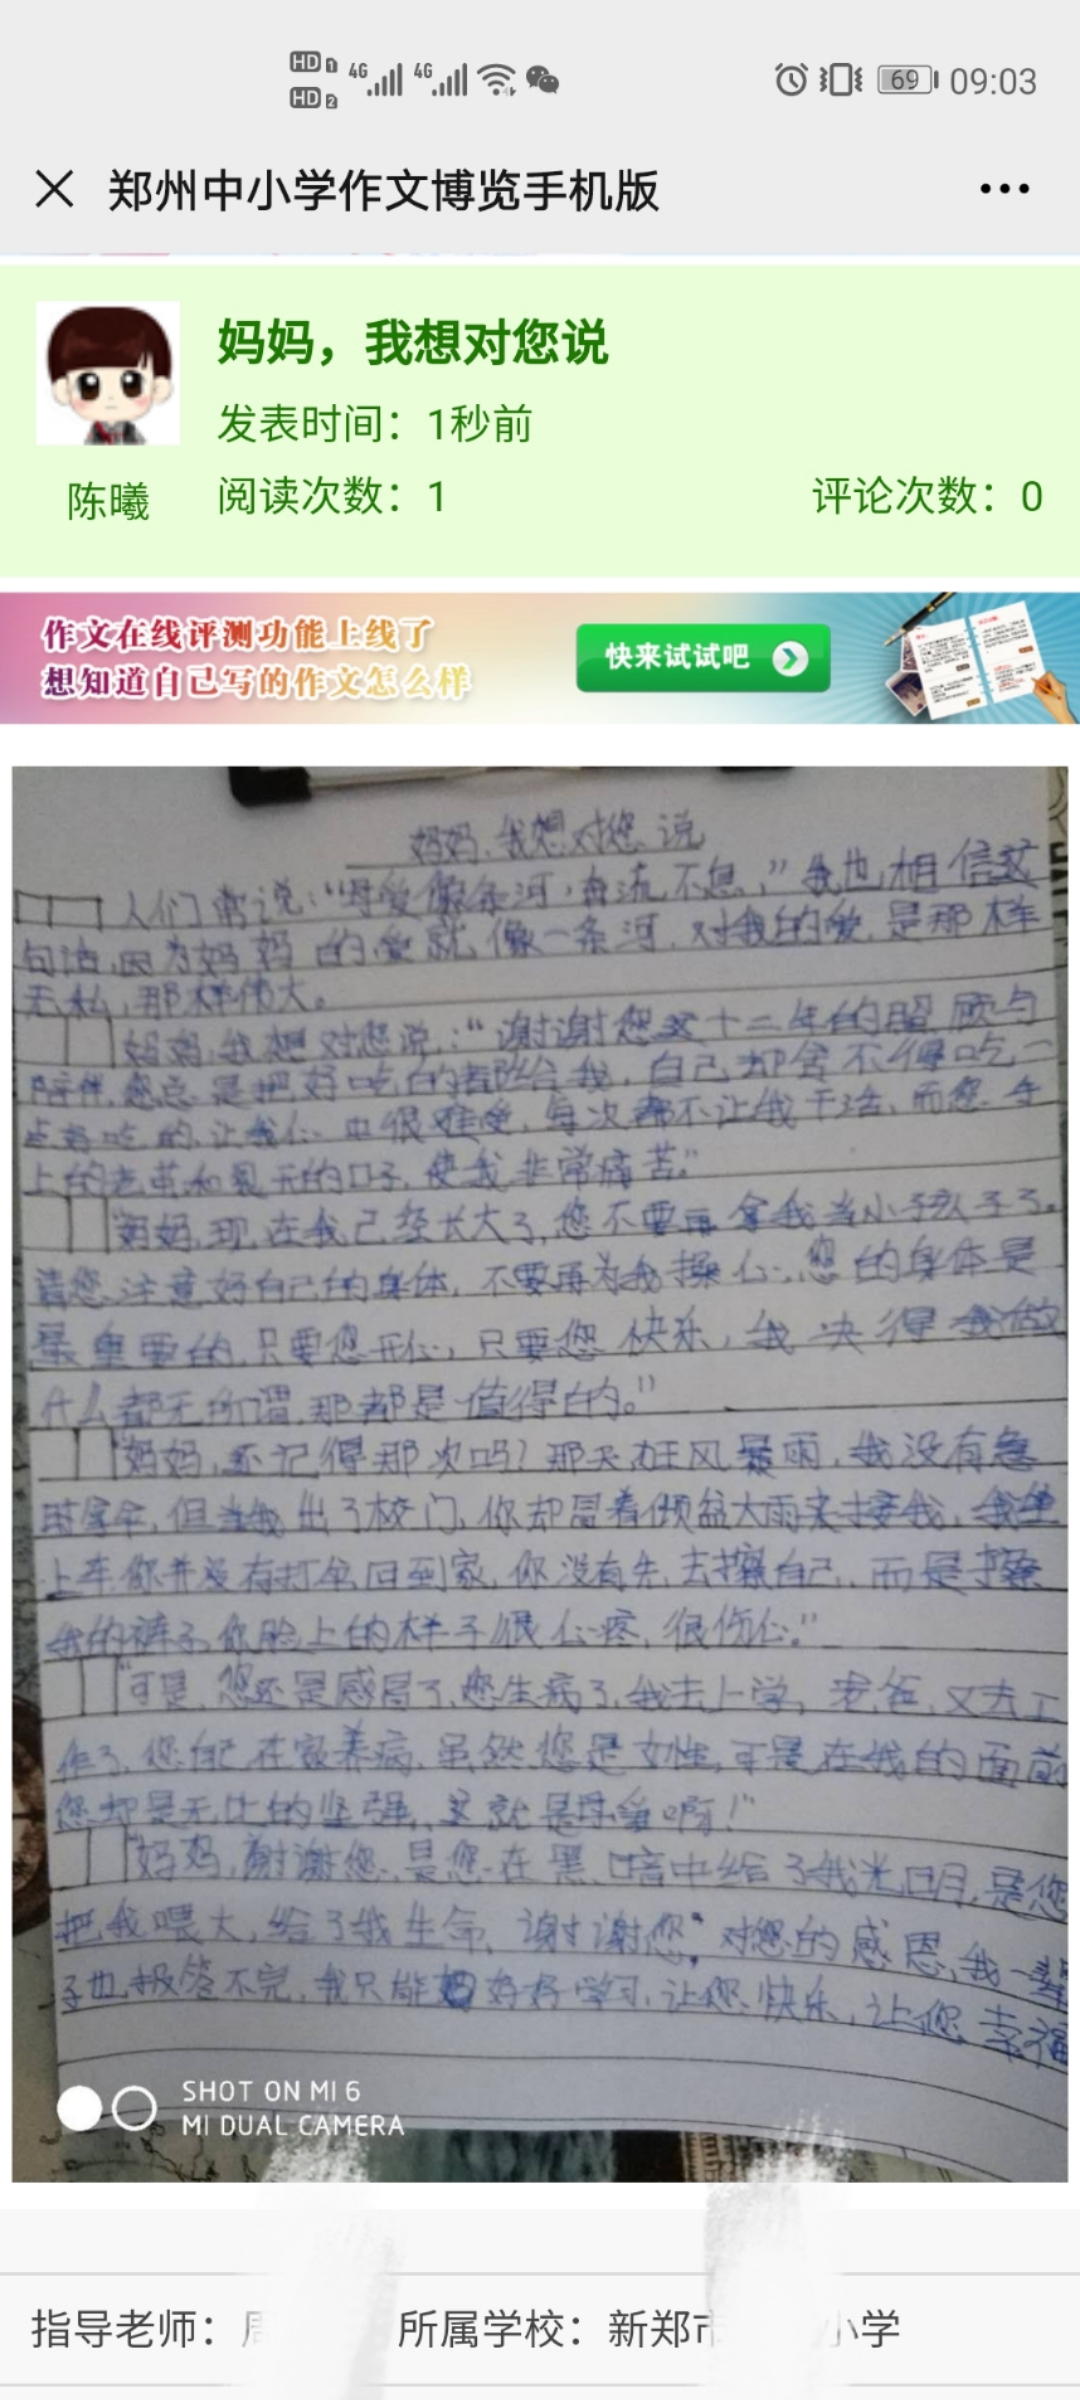 HD 1 4G 4G 69 09:03
HD 2
郑州中小学作文博览手机版
妈妈，我想对您说
发表时间：1秒前
陈曦 阅读次数：1 评论次数：0
作文在线评测功能上线了
想知道自己写的作文怎么样
快来试试吧
妈妈，我想对您说
人们常说：“母爱像条河，奔流不息，”我也相信这
句话，因为妈妈的爱就像一条河，对我的爱，是那样
无私，那样伟大。
妈妈，我想对您说：“谢谢您这十二年的照顾与
陪伴，您总是把好吃的都给我，自己却舍不得吃一
点好吃的，让我心中很难受，每次都不让我干活，而您手
上的老茧和裂开的口子，使我非常痛苦。”
“妈妈，现在我已经长大了，您不要再拿我当小孩子了。
请您注意好自己的身体，不要再为我操心，您的身体是
最重要的，只要您开心，只要您快乐，我决得我做
什么都无所谓，那都是值得的。”
“妈妈，还记得那次吗？那天狂风暴雨，我没有
但当我出了校门，你却冒着倾盆大雨来接我，我坐
上车，你并没有打伞回到家，你没有先去擦自己，而是擦
我的裤子，你脸上的样子很心疼，很伤心。”
“可是，您还是感冒了，您生病了，我去上学，老爸，又去工
作了，您自己在家养病，虽然您是女性，可是在我的面前
您却是无比的坚强，这就是母爱啊！”
“妈妈，谢谢您，是您在黑暗中给了我光明，是您
把我喂大，给了我生命，谢谢您”对您的感恩，我一辈
子也报答不完，我只能好好学习，让您快乐，让您幸福
SHOT ON MI 6
MI DUAL CAMERA
指导老师：周 所属学校：新郑市 小学